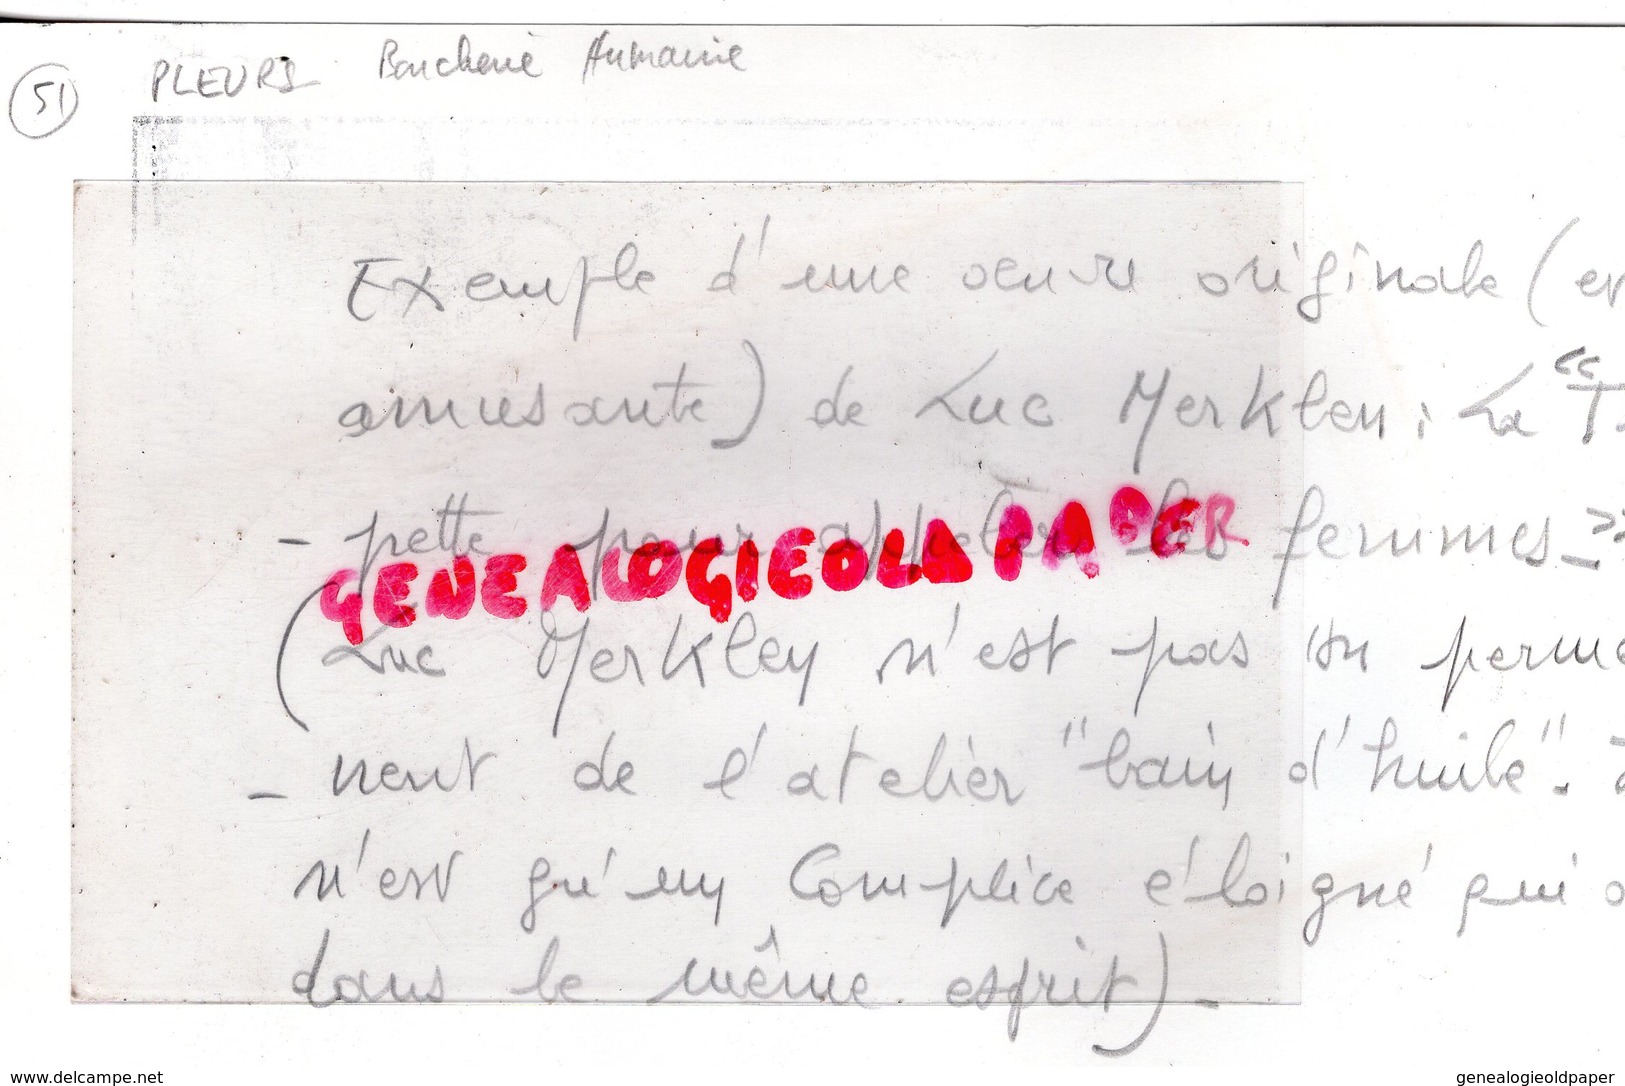 51 PLEURS Boucherie Humaine
Exemple d'une oeuvre originale (et
amusante) de Luc Merkley : La "T
- pette pour appeler les femmes - »
GENEALOGIEOLD PAPER
(Luc Merkley n'est pas un perma
- nent de l'atelier "bain d'huile".
n'est qu'un complice éloigné qui
dans le même esprit) -
www.delcampe.net
genealogieoldpaper